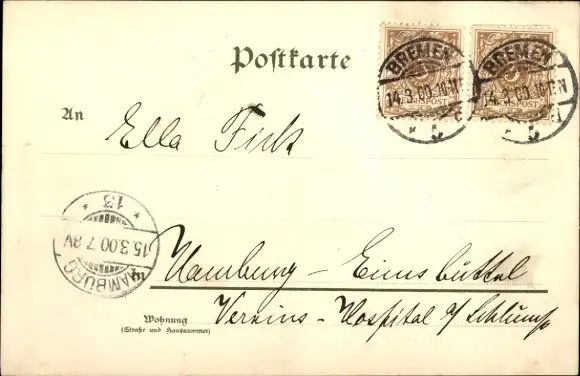 Postkarte
BREMEN
14.3.00.10-11
BREMEN
14.3.00.10-11N
POST
An
Ella
13
HAMBURG
15.3.00.7-8V
Hamburg - Eimsbüttel
Wohnung
(Straße und Hausnummer)
Vereins-Hospital a/ Schlump